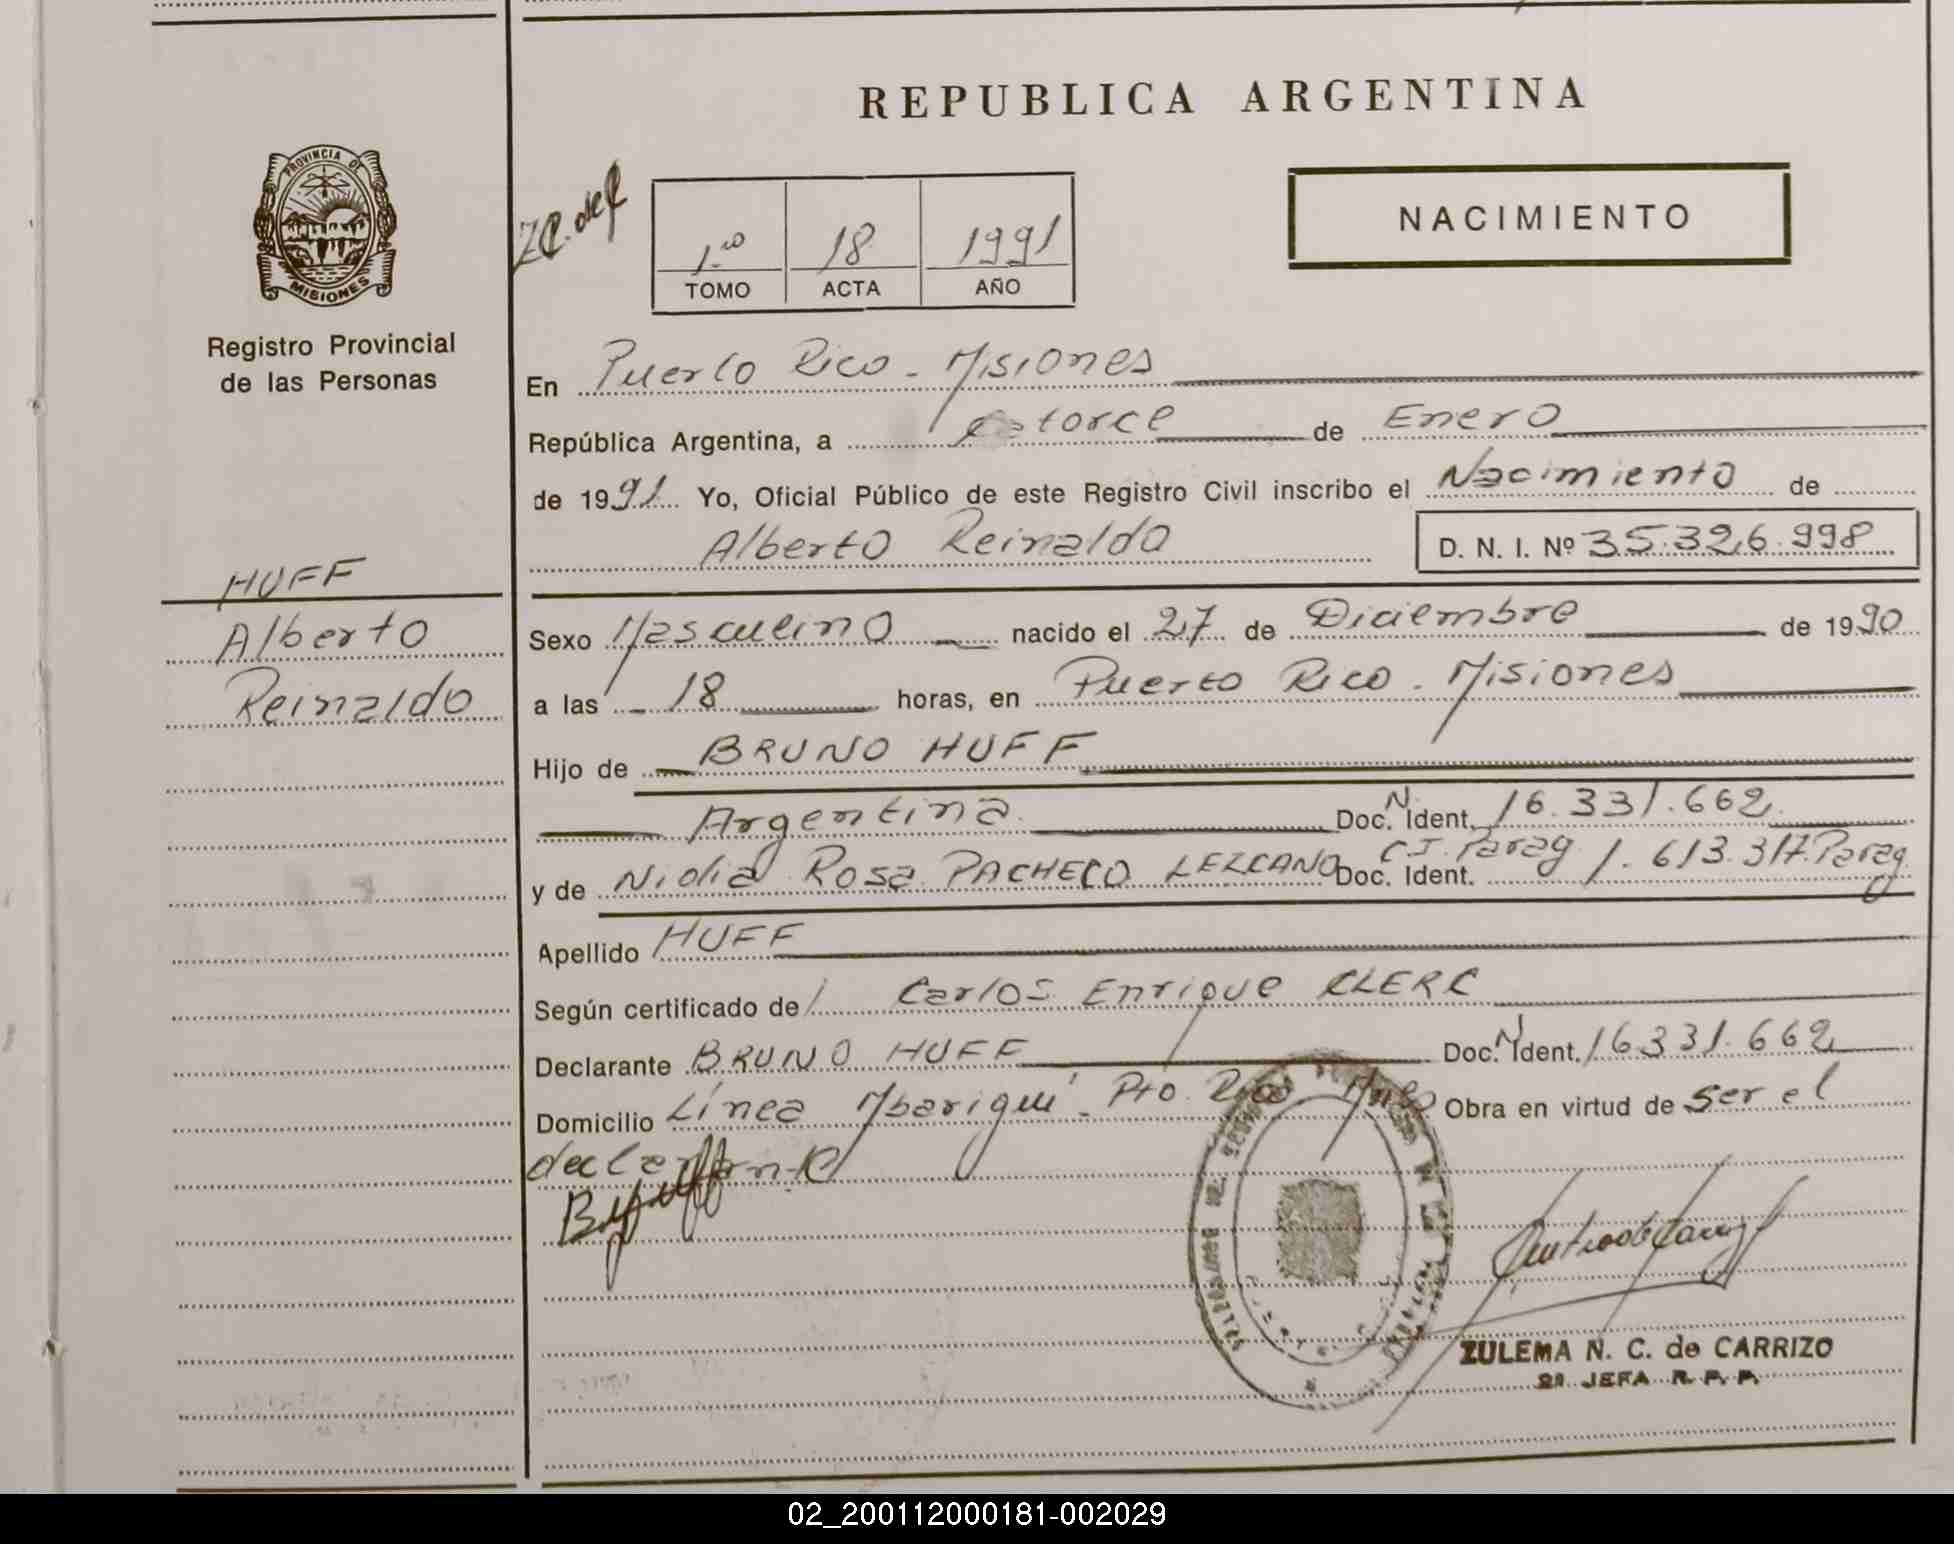 REPUBLICA ARGENTINA
PROVINCIA DE
MISIONES
Registro Provincial
de las Personas
NACIMIENTO
1.ro 18 1991
TOMO ACTA AÑO
En Puerto Rico - Misiones
República Argentina, a Catorce de Enero
de 1991 Yo, Oficial Público de este Registro Civil inscribo el Nacimiento de
Alberto Reinaldo D. N. I. Nº 35.326.998
HUFF
Alberto
Reinaldo
Sexo Masculino nacido el 27 de Diciembre de 1990
a las 18 horas, en Puerto Rico - Misiones
Hijo de BRUNO HUFF
Argentina Doc. N. Ident. 16.331.662
y de Nidia Rosa PACHECO LEZCANO Doc. Ident. C.I. Parag 1.613.317 Parag
Apellido HUFF
Según certificado de Carlos Enrique CLERC
Declarante BRUNO HUFF Doc. N Ident. 16331.662
Domicilio Línea Mbariguí - Pto. Rico Mnes Obra en virtud de ser el
declarante
ZULEMA N. C. de CARRIZO
2ª JEFA R. P. P.
02_200112000181-002029